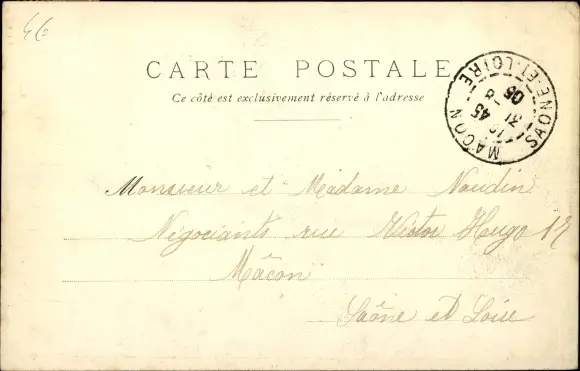 46
CARTE POSTALE
Ce côté est exclusivement réservé à l'adresse
MACON
SAONE-ET-LOIRE
45
31
05
Monsieur et Madame Naudin
Négociants rue Victor Hugo 17
Mâcon
Saône et Loire